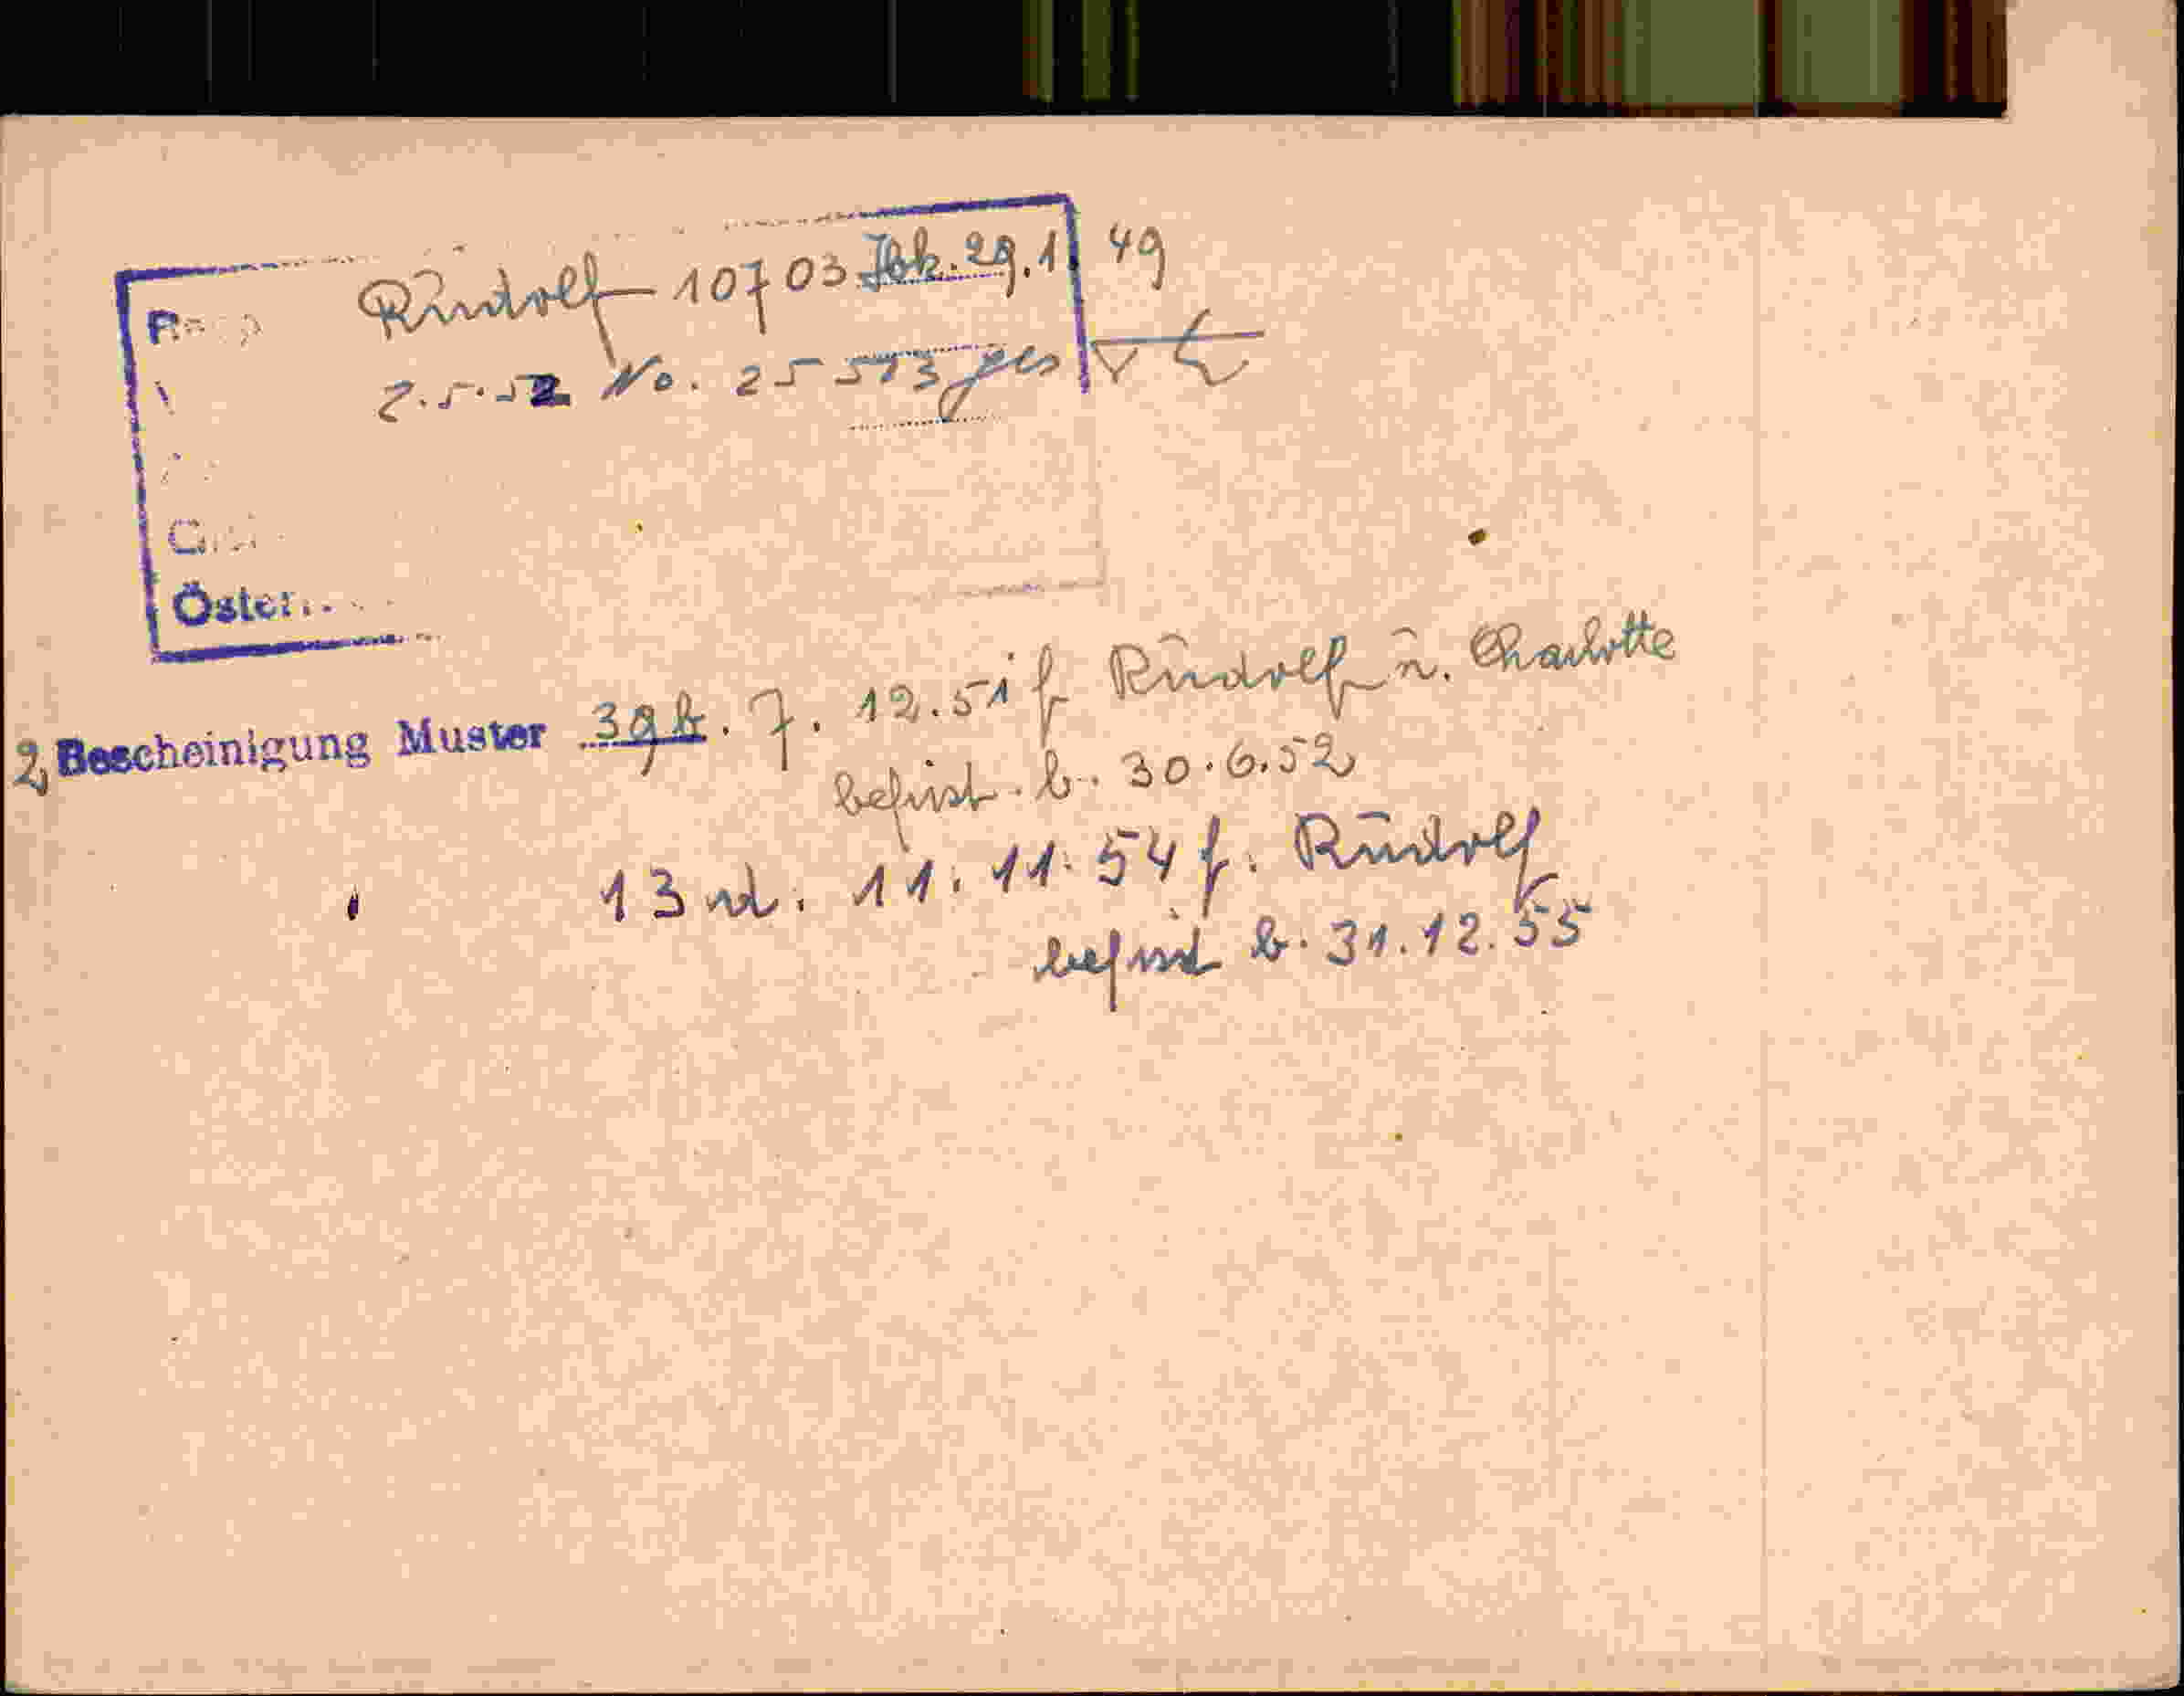 Rudolf 10703 Jbk. 29.1 49
2.5.52 No. 25 573 ges
Öster
2, Bescheinigung Muster 39b. 7. 12.51 f Rudolf u. Charlotte
befrist. b. 30.6.52
13 11. 11. 54 f. Rudolf
befrist b. 31.12.55